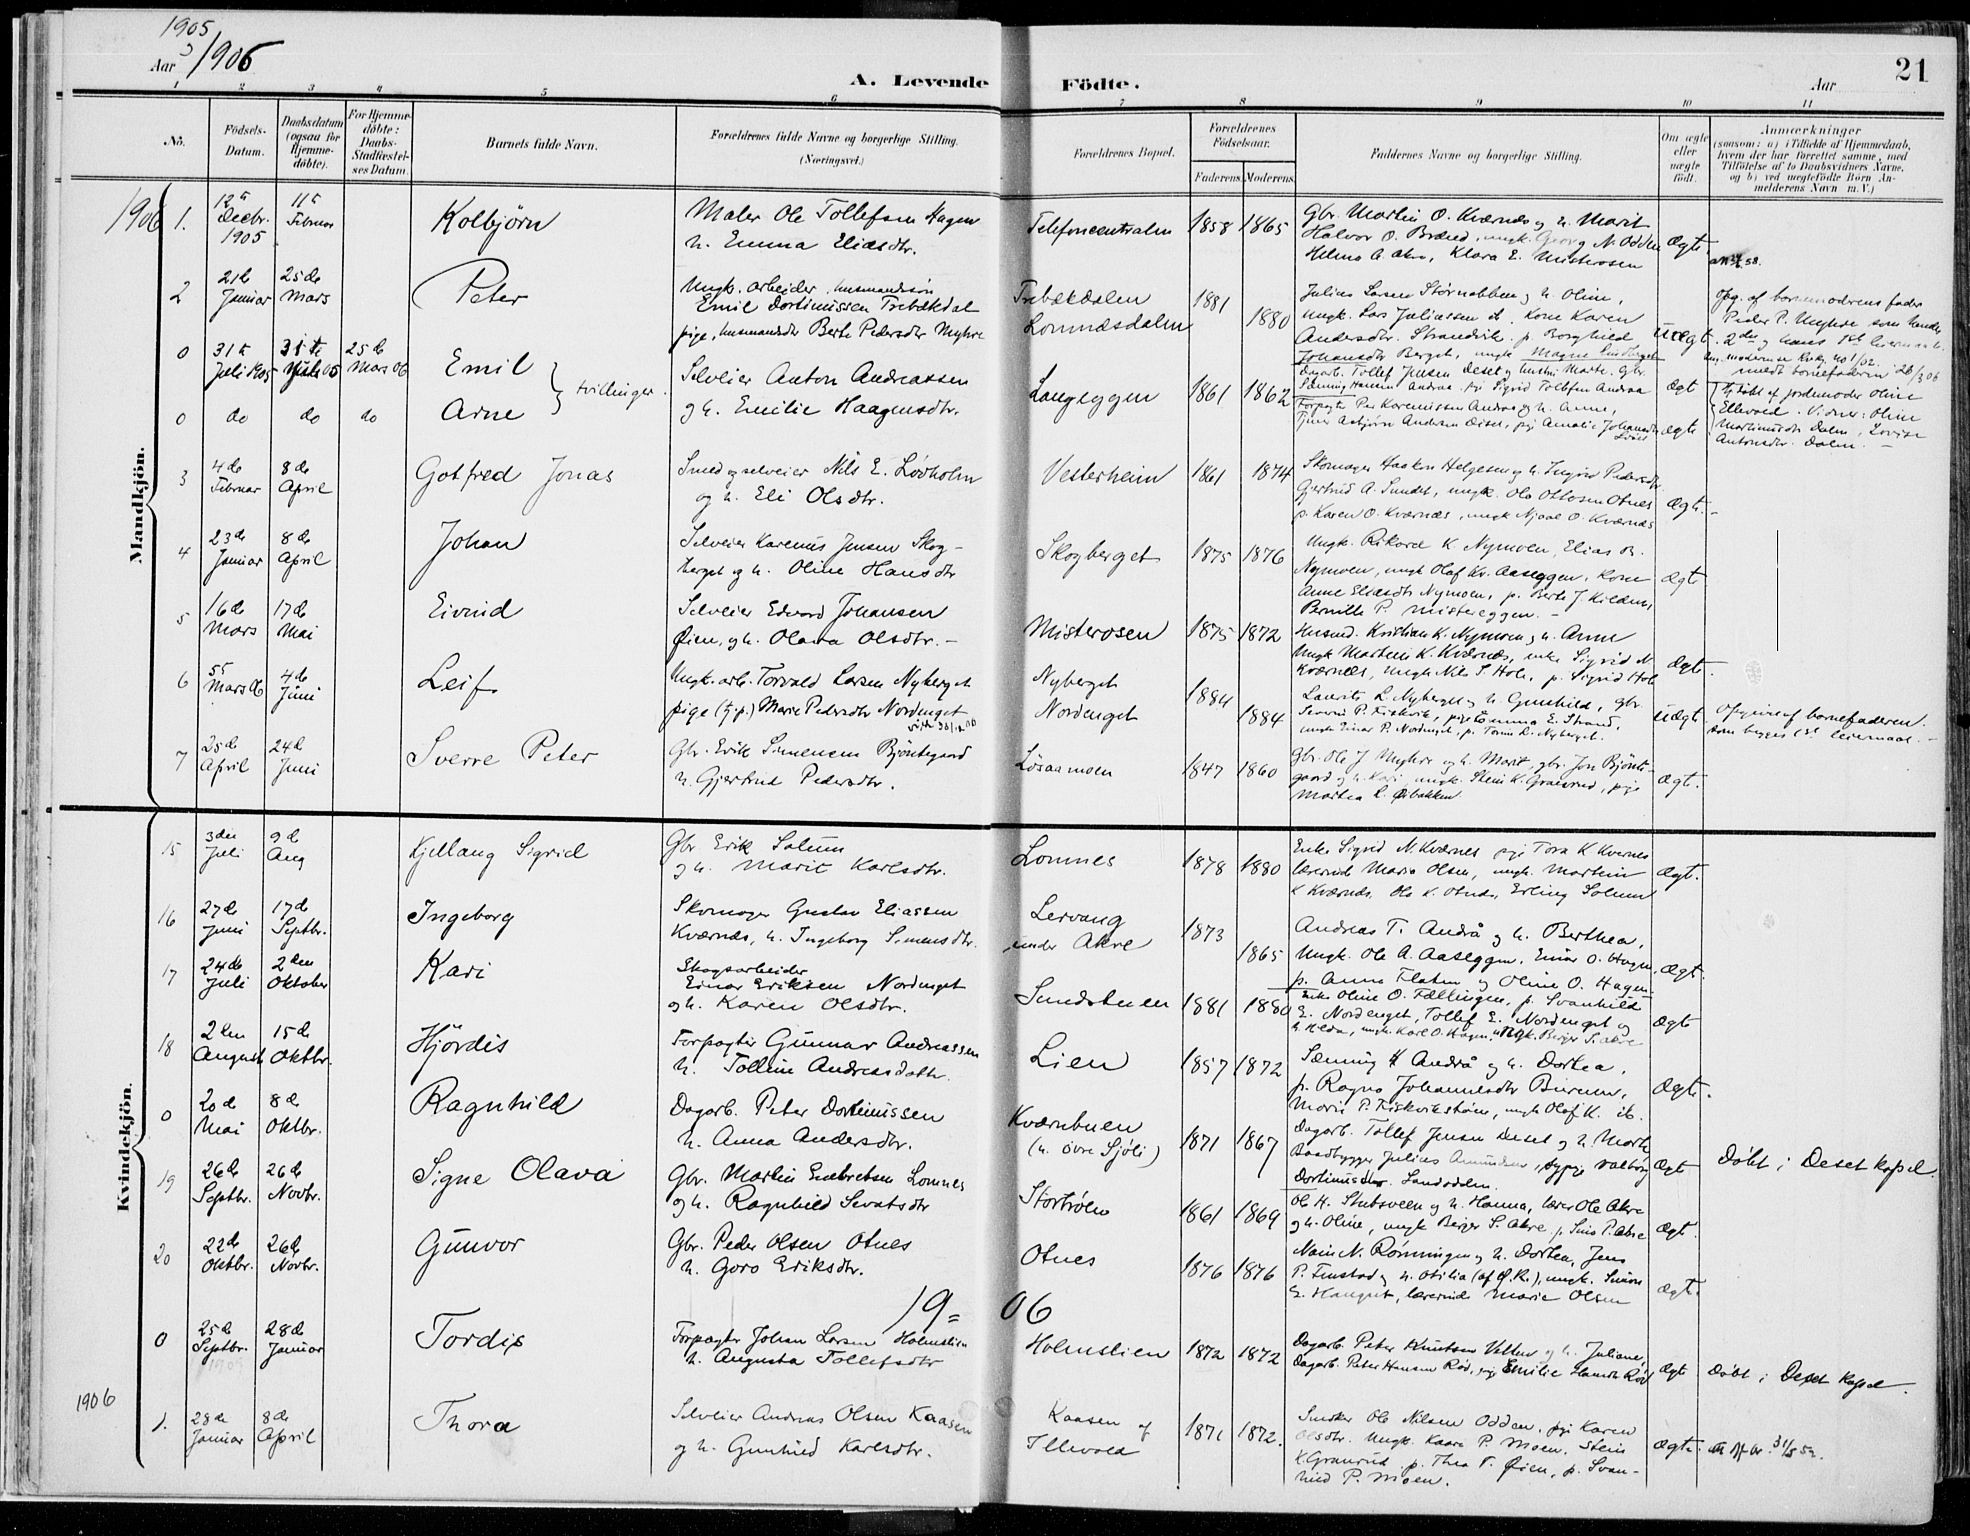 1905
Aar 1906
A. Levende Födte.
Aar
21
1 2 3 4 5 6 7 8 9 10 11
No.
Födsels-Datum.
Daabsdatum (ogsaa for Hjemme-döbte).
For Hjemme-döbte: Daabs-Stadfæstel-ses Datum.
Barnets fulde Navn.
Forældrenes fulde Navne og borgerlige Stilling. (Næringsvei.)
Forældrenes Bopæl.
Forældrenes Födselsaar.
Faderens. Moderens.
Faddernes Navne og borgerlige Stilling.
Om ægte eller uægte födt.
Anmærkninger
(saasom: a) i Tilfælde af Hjemmedaab,
hvem der har forrettet samme, med
Tilföielse af to Daabsvidners Navne,
og b) ved uegtefödte Börn An-
melderens Navn m. V.)
Mandkjön.
1906 1. 12te Decbr. 1905 11te Februar Kolbjörn
Maler Ole Tollefsen Hagen
h. Emma Eliasdtr.
Telefoncentralen 1858 1865
Gbr. Martin O. Kværnes og h. Marit
Halvor O. Bræned, ungk. Georg N. Odden
Helma A. Akre, Klara E. Misterosen
ægte
2 21de Januar 25de Mars Peter
Ungk. arbeider, husmandssøn
Emil Dortinussen Trebækdal
pige, husmandsdtr Berte Pedersdtr Myhre
Trebækdalen
Lomnæsdalen
1881 1880
Julius Larsen Störnebben og h. Oline,
ungk. Lars Juliussen d. Kone Karen
Andersdtr. Strandvik. p. Borghild
Johansdtr Berget, ungk Magne Lindberget
uægt.
Opg. af barnemoderens fader
Peder P. Myhre som hendes
2det og hans 1st leiermaal.
0 31te Juli 1905 31te Juli 05 25de Mars 06 Emil
0 do do do Arne
tvillinger.
Selveier Anton Andreassen
og h. Emilie Haagensdtr.
Langeggen 1861 1862
Dagarb. Tollef Jensen Deset og hustru Marte. Gbr.
Sæming Hansen Andraa. pige Sigrid Tollefsen Andraa
Forpagter Per Karenussen Andraa og h. Anne,
Tjener Asbjörn Andersen Deset, pige Amalie Johansdtr
ægt
ægte
Hj.döbt af jordemoder Oline
Ellevold. Vidner: Oline
Martinusdtr Dalen, Lovise
Antonsdtr. Dalen. —
3 4de Februar 8de April Gotfred Jonas
Smed og selveier Nils E. Lövholm
og h. Eli Olsdtr.
Vesterheim 1861 1874
Skomager Haaken Helgesen og h. Ingrid Pedersdtr.
Gjertrud A. Sundet, ungk. Ole Ottosen Otnes
p. Karen O. Kværnes, ungk Njaal O. Kværnes
ægte.
4 23de Januar 8de April Johan
Selveier Karenus Jensen Skog-
berget og h. Oline Hansdtr
Skogberget 1875 1876
Ungk. Rikard K. Nymoen, Elias B.
Nymoen, ungk Olaf Kr. Aaseggen, Kone
Anne Eliasdtr Nymoen, p. Berte J Kilden,
Pernille P. Mistereggen. —
ægt
5 16de Mars 17de Mai Eivind
Selveier Edvard Johansen
Øien, og h. Olava Olsdtr. —
Misterosen 1875 1872
Husmd. Kristian K. Nymoen og h. Anne
Ungk Martin K. Kværnes, enke Sigrid N
Kværnes, ungk Nils S. Hole, p. Sigrid Hole
ægt.
6 Mars 06 4de Juni Leif
Ungk. arb. Torvald Larsen Nyberget
pige (tj.p.) Marie Pedersdtr Nordenget
Nyberget
Nordenget
1884 1884
Laurits L. Nyberget og h. Gunhild, gbr.
Severin P. Fiskvik, pige Emma E. Strand,
ungk Einar P. Nordenget, p. Tomine L. Nyberget.
uægt
Opgivet af barnefaderen.
som begges 1st leiermaal. —
7 25de April 24de Juni Sverre Peter
Gbr. Erik Simensen Bjöntegaard
h. Gjertrud Pedersdtr.
Lösaamoen 1847 1860
Gbr. Ole J Myhre og h. Marit, gbr. Jon Bjönte-
gaard og h. Kari, ungk. Stein K. Granrud, pige
Martea L. Øibakken
ægt.
Kvindekjön.
15 3die Juli 9de Aug Kjellaug Sigrid
Gbr Erik Solum
og h. Marit Karlsdtr.
Lomnes 1878 1880
Enke Sigrid N. Kværnes pige Tora K Kværnes
lærerinde Marie Olsen, ungk. Martin
K Kværnes, Ole K. Otnes, Erling Solum
ægt.
16 27de Juni 17de Septbr. Ingeborg
Skomager Gustav Eliassen
Kværnes, h. Ingeborg Simensdtr.
Lervang
under Akre
1873 1865
Andreas T. Andrå og h. Berthea,
Ungk. Ole A. Aaseggen, Einar O. Hagen,
p. Anna Flaten og Oline O. Hagen
ægt.
17 24de Juli 2den Oktober Kari
Skogsarbeider
Einar Eriksen Nordenget
og h. Karen Olsdtr.
Sundstuen 1881 1880
Enke Oline O. Fællingen, p. Svanhild
E. Nordenget, Tollef E. Nordenget og
ægt
18 2den August 15de Oktbr. Hjördis
Forpagter Gunnar Andreassen
h. Tolline Andreasdatter
Lien 1857 1872
Sæming H Andrå og h. Dortea,
p. Ragna Johannesdtr Burum,
Marie P. Fiskvikströen, ungk Olaf K. ib.
ægt.
0 20de Mai 8de Oktbr. Ragnhild
Dagarb. Peter Dortinussen
h. Anna Andersdtr.
Kværnbuen
(h. övre Sjöli)
1871 1867
Dagarb. Tollef Jensen Deset og h. Marte
Baadbygger Julius Amundsen, sypige Valborg
Dortinusdtr. Sandodden.
ægt
Döbt i Deset kapel.
19 26de Septbr. 26de Novbr. Signe Olava
Gbr. Martin Embretsen Lomnes
og h. Ragnhild Sivatsdtr
Storbrøen 1861 1869
Ole H. Stubsveen og h. Hanna, lærer Ole Akre
og h. Oline, ungk Birger S. Akre, p. Siris P. Akre
ægt.
20 22de Oktbr. 26de Novbr. Gunvor
Gbr. Peder Olsen Otnes
h. Goro Eriksdtr.
Otnes 1876 1876
Naim N. Rönningen og h. Dortea, Jens
P. Finstad og h. Otilia (af Ø.R.), ungk. Simen
E. Haugset, lærerinde Marie Olsen
ægt.
19=06
0 25de Septbr. 1905 28de Januar Tordis
Forpagter Johan Larsen Holmslien
h. Augusta Tollefsdtr
Holmslien 1872 1872
Dagarb. Peter Knutsen Velten og h. Juliane,
Dagarb. Peter Hansen Röd, pige Emilie Hansdtr Röd
ægt
Döbt i Deset kapel.
1906 1. 28de Januar 8de April Thora
Selveier Andreas Olsen Kaasen
og h. Gunhild Karlsdtr.
Kaasen af
Illevold
1871 1872.
Snekker Ole Nilsen Odden, pige Karen
Olsdtr. Ungk. Kaare P. Moen, Stein
K. Granrud. p. Thea T. Øien, p. Svan-
hild P. Moen.
ægte.